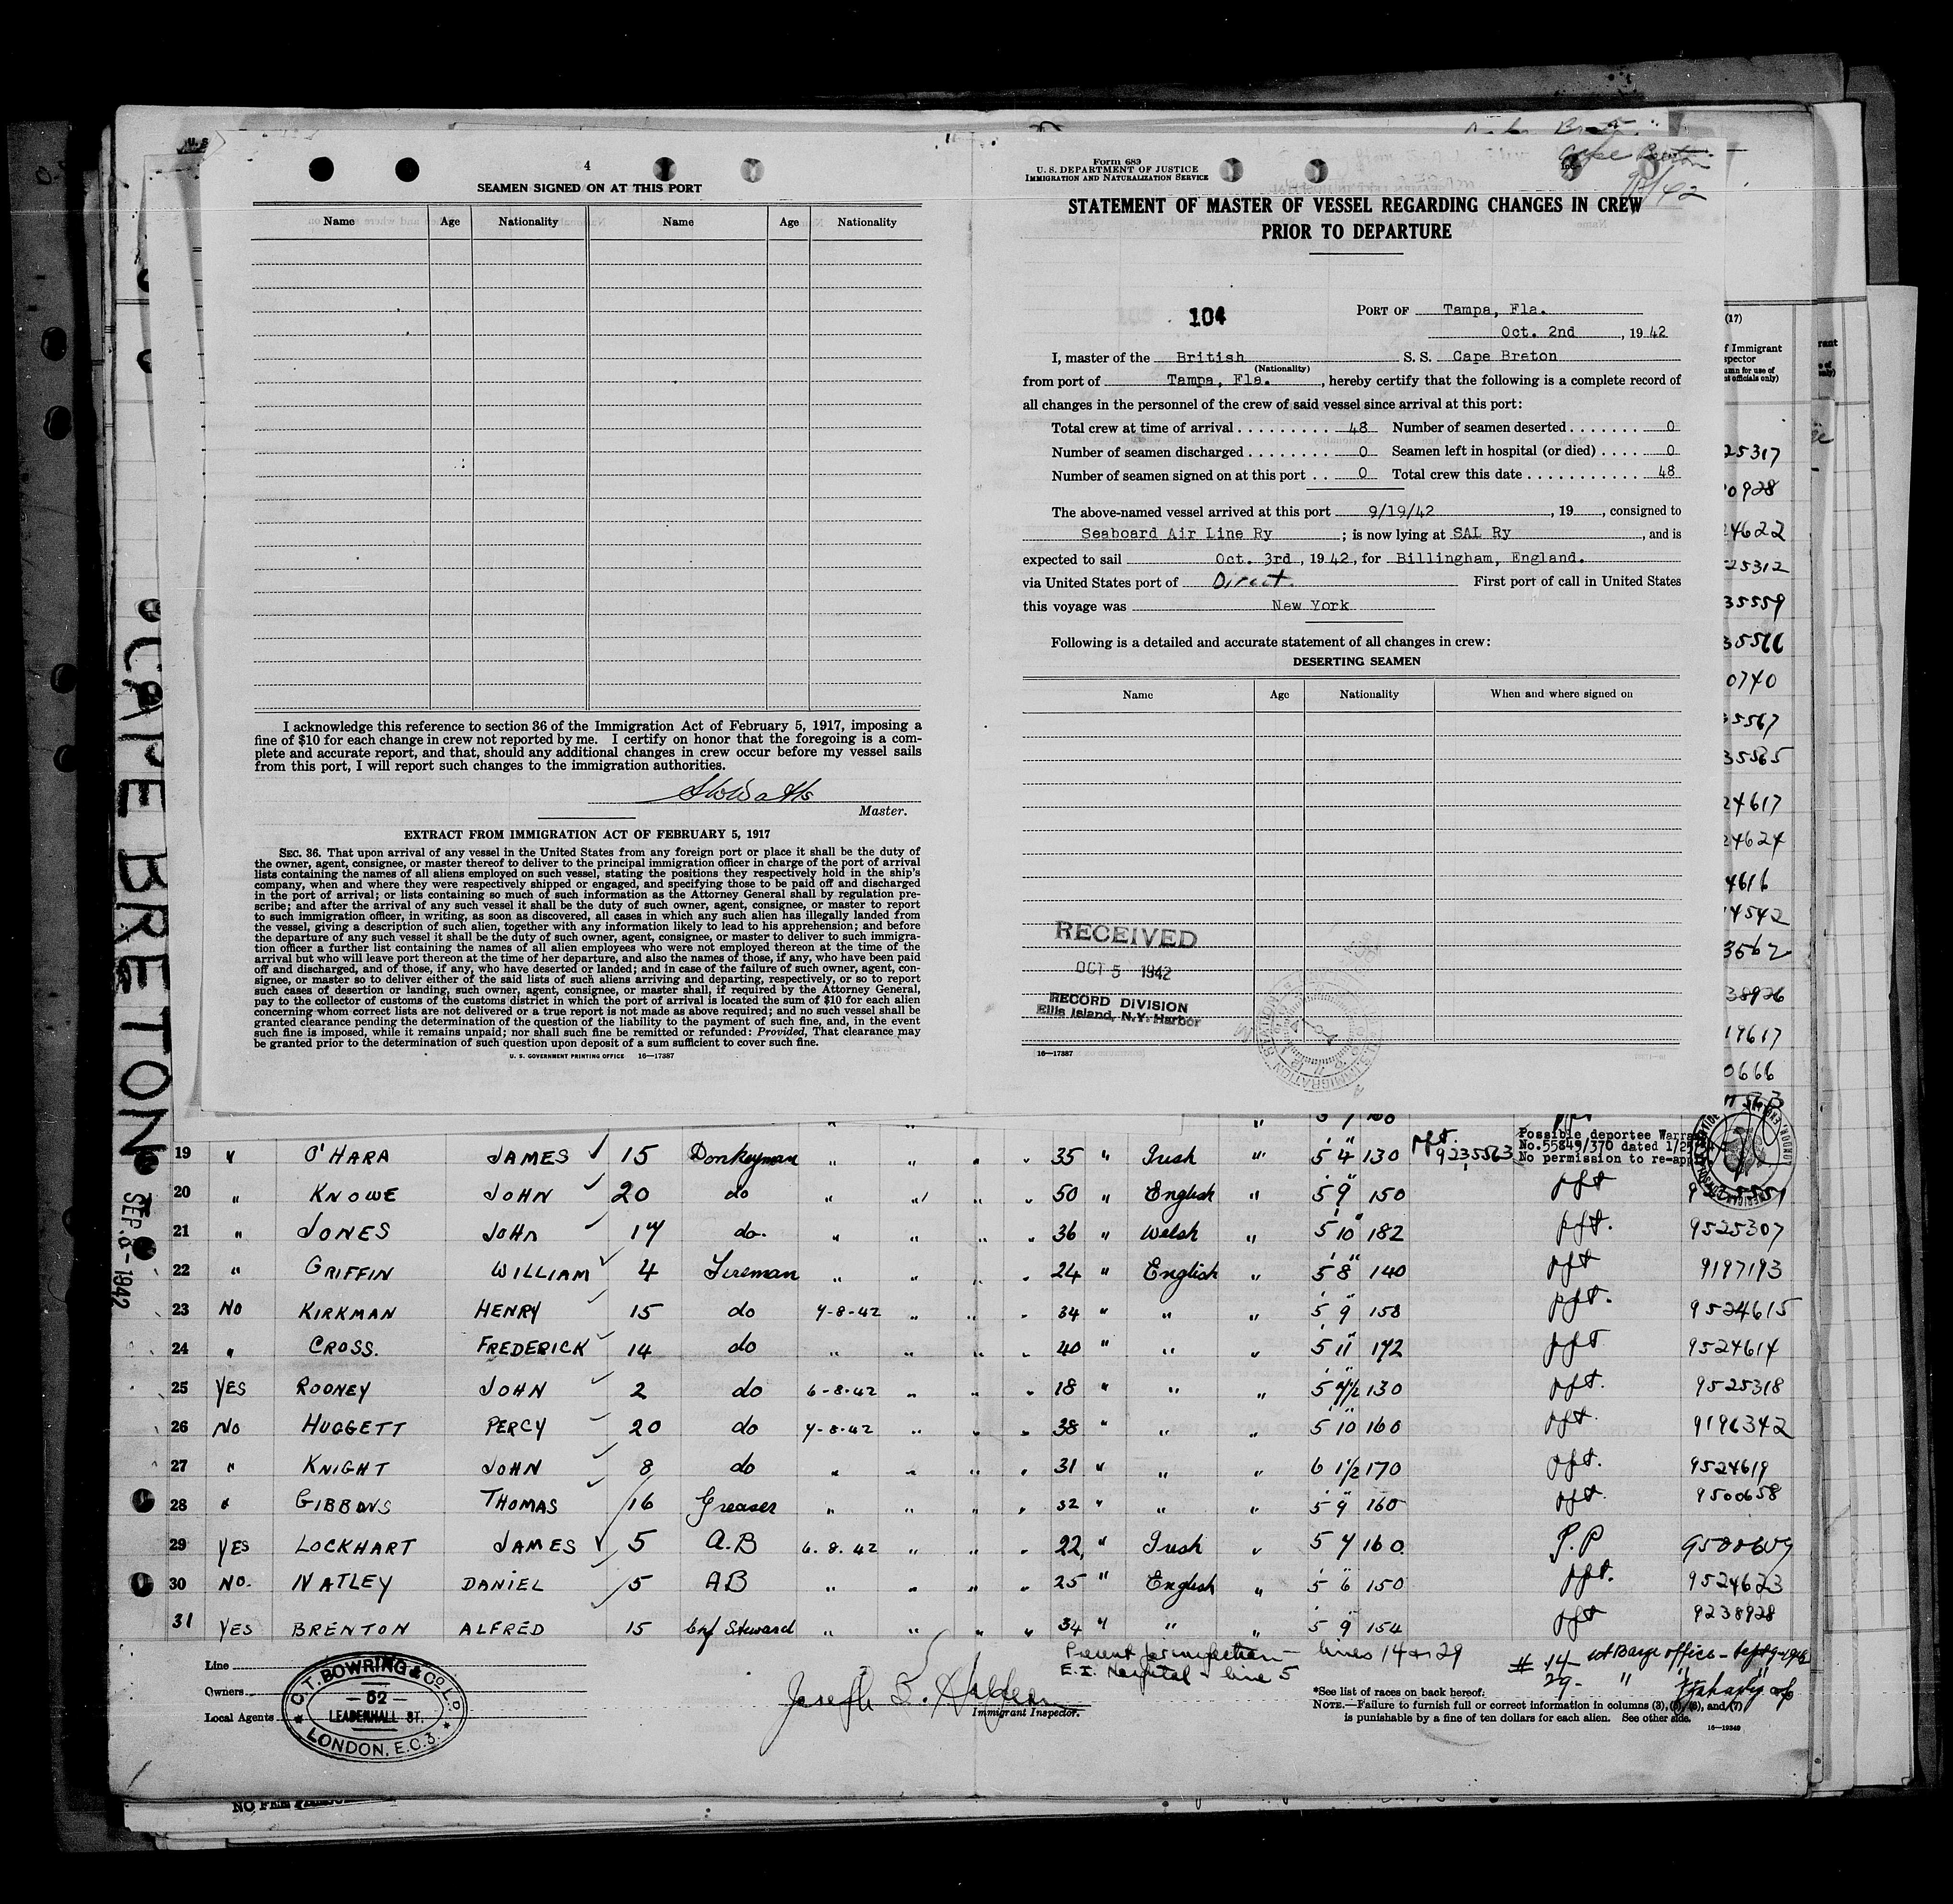 4
SEAMEN SIGNED ON AT THIS PORT
Name Age Nationality Name Age Nationality
I acknowledge this reference to section 36 of the Immigration Act of February 5, 1917, imposing a
fine of $10 for each change in crew not reported by me. I certify on honor that the foregoing is a com-
plete and accurate report, and that, should any additional changes in crew occur before my vessel sails
from this port, I will report such changes to the immigration authorities.
Master.
EXTRACT FROM IMMIGRATION ACT OF FEBRUARY 5, 1917
SEC. 36. That upon arrival of any vessel in the United States from any foreign port or place it shall be the duty of
the owner, agent, consignee, or master thereof to deliver to the principal immigration officer in charge of the port of arrival
lists containing the names of all aliens employed on such vessel, stating the positions they respectively hold in the ship's
company, when and where they were respectively shipped or engaged, and specifying those to be paid off and discharged
in the port of arrival; or lists containing so much of such information as the Attorney General shall by regulation pre-
scribe; and after the arrival of any such vessel it shall be the duty of such owner, agent, consignee, or master to report
to such immigration officer, in writing, as soon as discovered, all cases in which any such alien has illegally landed from
the vessel, giving a description of such alien, together with any information likely to lead to his apprehension; and before
the departure of any such vessel it shall be the duty of such owner, agent, consignee, or master to deliver to such immigra-
tion officer a further list containing the names of all alien employees who were not employed thereon at the time of the
arrival but who will leave port thereon at the time of her departure, and also the names of those, if any, who have been paid
off and discharged, and of those, if any, who have deserted or landed; and in case of the failure of such owner, agent, con-
signee, or master so to deliver either of the said lists of such aliens arriving and departing, respectively, or so to report
such cases of desertion or landing, such owner, agent, consignee, or master shall, if required by the Attorney General,
pay to the collector of customs of the customs district in which the port of arrival is located the sum of $10 for each alien
concerning whom correct lists are not delivered or a true report is not made as above required; and no such vessel shall be
granted clearance pending the determination of the question of the liability to the payment of such fine, and, in the event
such fine is imposed, while it remains unpaid; nor shall such fine be remitted or refunded: Provided, That clearance may
be granted prior to the determination of such question upon deposit of a sum sufficient to cover such fine.
U. S. GOVERNMENT PRINTING OFFICE 16—17387
Form 689
U. S. DEPARTMENT OF JUSTICE
IMMIGRATION AND NATURALIZATION SERVICE
STATEMENT OF MASTER OF VESSEL REGARDING CHANGES IN CREW
PRIOR TO DEPARTURE
104
PORT OF Tampa, Fla.
Oct. 2nd, 1942
I, master of the British S. S. Cape Breton
(Nationality)
from port of Tampa, Fla., hereby certify that the following is a complete record of
all changes in the personnel of the crew of said vessel since arrival at this port:
Total crew at time of arrival 48 Number of seamen deserted 0
Number of seamen discharged 0 Seamen left in hospital (or died) 0
Number of seamen signed on at this port 0 Total crew this date 48
The above-named vessel arrived at this port 9/19/42, 19, consigned to
Seaboard Air Line Ry; is now lying at SAL Ry, and is
expected to sail Oct. 3rd, 1942, for Billingham, England.
via United States port of Direct First port of call in United States
this voyage was New York
Following is a detailed and accurate statement of all changes in crew:
DESERTING SEAMEN
Name Age Nationality When and where signed on
RECEIVED
OCT 5 1942
RECORD DIVISION
Ellis Island, N.Y. Harbor
16—17387
CAPE BRETON
SEP. 8 - 1942
(17)
25317
0928
4622
25312
35559
35566
0740
5567
35565
24617
24624
4616
4542
3562
38926
19617
0666
19 " O'HARA JAMES 15 Donkeyman " " " " 35 " Irish " 5 4 130 Possible deportee Warra
No. 55849/370 dated 1/2
No permission to re-app
20 " KNOWE JOHN 20 do " " " " 50 " English " 5 9 150 pft
21 " JONES JOHN 17 do. " " " " 36 " Welsh " 5 10 182 pft. 9525307
22 " GRIFFIN WILLIAM 4 Fireman " " " " 24 " English " 5 8 140 pft 9197193
23 No KIRKMAN HENRY 15 do 7-8-42 " " " 34 " " " 5 9 158 pft. 9524615
24 " CROSS. FREDERICK 14 do " " " " 40 " " " 5 11 172 pft 9524614
25 YES ROONEY JOHN 2 do 6-8-42 " " " 18 " " " 5 4½ 130 pft. 9525318
26 No HUGGETT PERCY 20 do 7-8-42 " " " 38 " " " 5 10 160 pft. 9196342
27 " KNIGHT JOHN 8 do " " " " 31 " " " 6 1½ 170 pft. 9524619
28 " GIBBONS THOMAS 16 Greaser " " " " 32 " " " 5 9 160 pft. 9500658
29 YES LOCKHART JAMES 5 A.B 6.8.42 " " " 22 " Irish " 5 7 160 P.P 9500609
30 No. NATLEY DANIEL 5 AB " " " " 25 " English " 5 6 150 pft. 9524623
31 YES BRENTON ALFRED 15 Steward " " " " 34 " " " 5 9 154 pft 9238928
Line
Owners
Local Agents
C.T. BOWRING & CO. LTD.
52
LEADENHALL ST.
LONDON, E.C.3.
Immigrant Inspector.
Present for inspection - lines 14 & 29
E.I. Hospital - line 5
# 14 - at Barge office - Sept 9-1942
29 - "
*See list of races on back hereof.
NOTE.—Failure to furnish full or correct information in columns (3), (5), (6), and (7)
is punishable by a fine of ten dollars for each alien. See other side.
16—19349